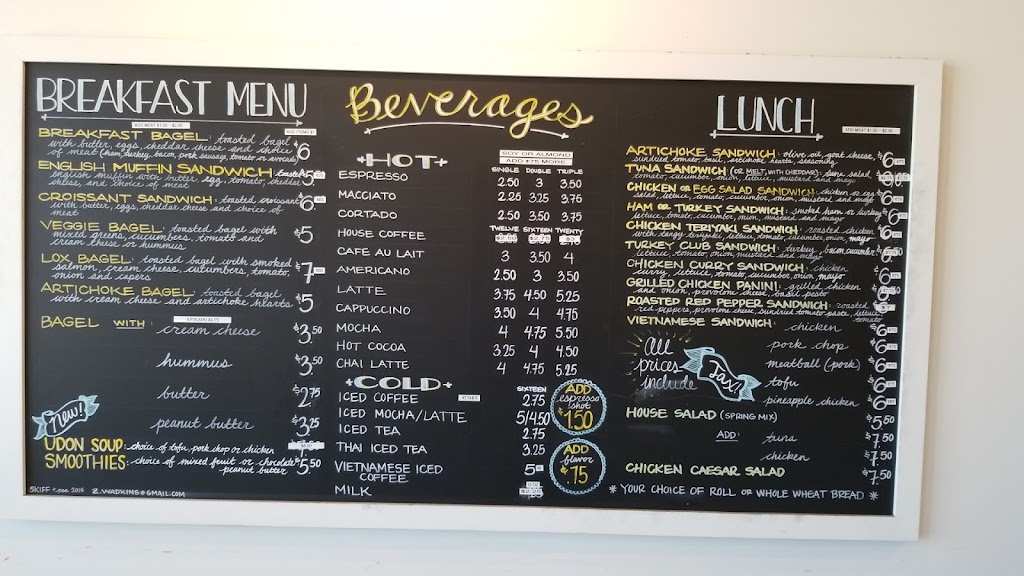 BREAKFAST MENU
ADD MEAT $1.50 - $2.50
ADD ITEMS $1
BREAKFAST BAGEL: toasted bagel
with butter, eggs, cheddar cheese and choice
of meat (ham, turkey, bacon, pork sausage, tomato or avocado)
$6
ENGLISH MUFFIN SANDWICH toasted
english muffin with butter, egg, tomato, cheddar
cheese, and choice of meat
$5
CROISSANT SANDWICH: toasted croissant
with butter, eggs, cheddar cheese and choice of
meat
$6
VEGGIE BAGEL: toasted bagel with
mixed greens, cucumbers, tomato and
cream cheese or hummus
$5
LOX BAGEL: toasted bagel with smoked
salmon, cream cheese, cucumbers, tomato,
onion and capers
$7
ARTICHOKE BAGEL: toasted bagel
with cream cheese and artichoke hearts
$5
BAGEL WITH:
cream cheese $3.50
hummus $3.50
butter $2.75
peanut butter $3.25
New!
UDON SOUP: choice of tofu, pork chop or chicken
SMOOTHIES: choice of mixed fruit or chocolate
peanut butter
$5.50
SKIFF 2015 Z.WADKINS@GMAIL.COM
Beverages
HOT
SOY OR ALMOND
ADD $.75 MORE
SINGLE DOUBLE TRIPLE
ESPRESSO 2.50 3 3.50
MACCIATO 2.25 3.25 3.75
CORTADO 2.50 3.50 3.75
TWELVE SIXTEEN TWENTY
HOUSE COFFEE
CAFE AU LAIT 3 3.50 4
AMERICANO 2.50 3 3.50
LATTE 3.75 4.50 5.25
CAPPUCCINO 3.50 4 4.75
MOCHA 4 4.75 5.50
HOT COCOA 3.25 4 4.50
CHAI LATTE 4 4.75 5.25
COLD
SIXTEEN
ICED COFFEE 2.75
ICED MOCHA/LATTE 5/4.50
ICED TEA 2.75
THAI ICED TEA 3.25
VIETNAMESE ICED
COFFEE
5
MILK
ADD
espresso
shot
$1.50
ADD
flavor
$.75
LUNCH
ADD MEAT $1.50 - $2.50
ARTICHOKE SANDWICH: olive oil, goat cheese,
sundried tomato, basil, artichoke hearts, seasoning
$6
TUNA SANDWICH (OR MELT, WITH CHEDDAR): tuna salad,
tomato, cucumber, onion, lettuce, mustard and mayo
$6
CHICKEN OR EGG SALAD SANDWICH: chicken or egg
salad, lettuce, tomato, cucumber, onion, mustard and mayo
$6
HAM OR TURKEY SANDWICH: smoked ham or turkey,
lettuce, tomato, cucumber, onion, mustard and mayo
CHICKEN TERIYAKI SANDWICH: roasted chicken
with tangy teriyaki, lettuce, tomato, cucumber, onion, mayo
TURKEY CLUB SANDWICH: turkey, bacon, cucumber,
lettuce, tomato, onion, mustard and mayo
CHICKEN CURRY SANDWICH: chicken
curry, lettuce, tomato, cucumber, onion, mayo
GRILLED CHICKEN PANINI: grilled chicken
and onion, provolone cheese, basil pesto
ROASTED RED PEPPER SANDWICH: roasted
red peppers, provolone cheese, sundried tomato pesto, lettuce,
tomato
VIETNAMESE SANDWICH: chicken $6
pork chop $6
meatball (pork) $6
tofu $6
pineapple chicken $6
all
prices
include
Tax!
HOUSE SALAD (SPRING MIX) $5.50
ADD: tuna $7.50
chicken $7.50
CHICKEN CAESAR SALAD $7.50
* YOUR CHOICE OF ROLL OR WHOLE WHEAT BREAD *